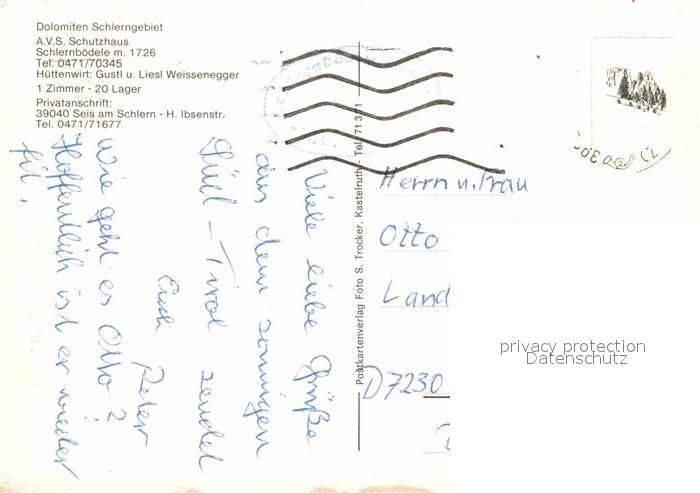 Dolomiten Schlerngebiet
A.V.S. Schutzhaus
Schlernbödele m. 1726
Tel. 0471/70345
Hüttenwirt: Gustl u. Liesl Weissenegger
1 Zimmer - 20 Lager
Privatanschrift:
39040 Seis am Schlern - H. Ibsenstr.
Tel. 0471/71677
Viele liebe Grüße
aus dem sonnigen
Süd-Tirol sendet
Euch Peter
Wie geht es Otto?
Hoffentlich ist er wieder
fit.
Postkartenverlag Foto S. Trocker, Kastelruth - Tel. 71371
Herrn u. Frau
Otto
Land
D7230
privacy protection
Datenschutz